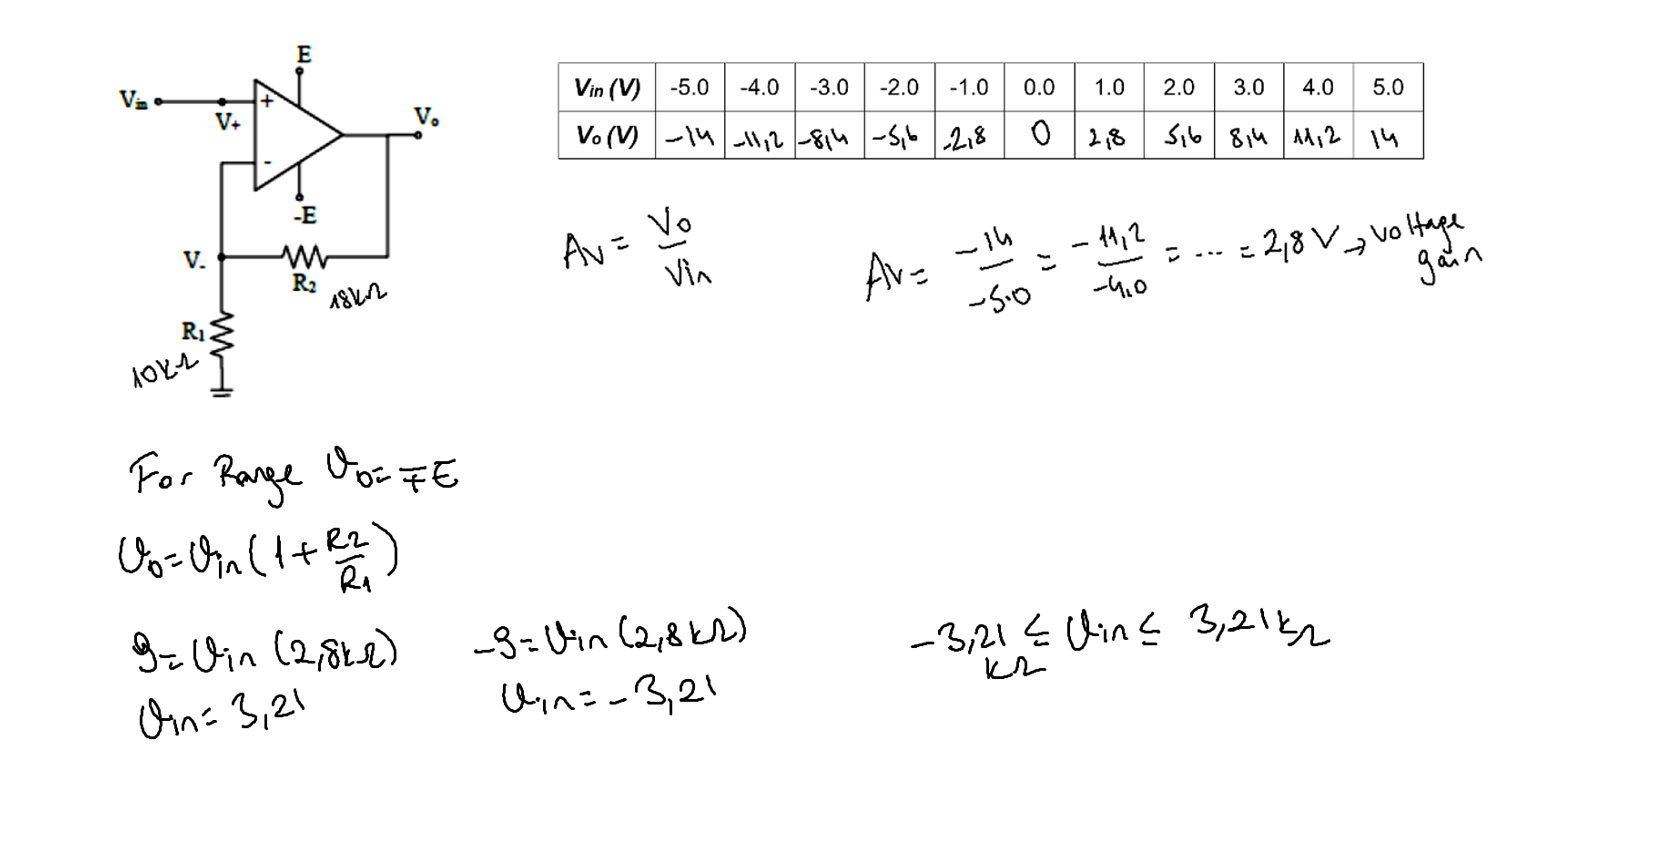 E
Vin
V+
+
-
Vo
-E
V-
R2
18kΩ
R1
10kΩ
Vin (V) -5.0 -4.0 -3.0 -2.0 -1.0 0.0 1.0 2.0 3.0 4.0 5.0
Vo (V) -14 -11,2 -8,4 -5,6 -2,8 0 2,8 5,6 8,4 11,2 14
Av = Vo / Vin
Av = -14 / -5.0 = -11,2 / -4.0 = ... = 2,8 V → voltage gain
For Range Vo = ∓E
Vo = Vin (1 + R2 / R1)
9 = Vin (2,8kΩ)
Vin = 3,21
-9 = Vin (2,8kΩ)
Vin = -3,21
-3,21 kΩ ≤ Vin ≤ 3,21kΩ